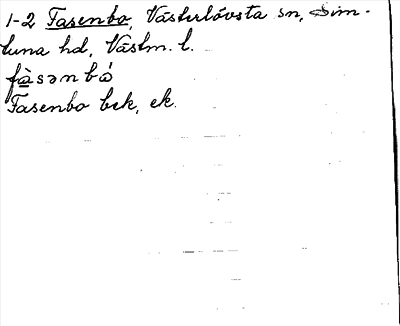 1-2 Fasenbo, Västerlövsta sn, Sim-
tuna hd, Västm. l.
fàsənbó
Fasenbo bek, ek.